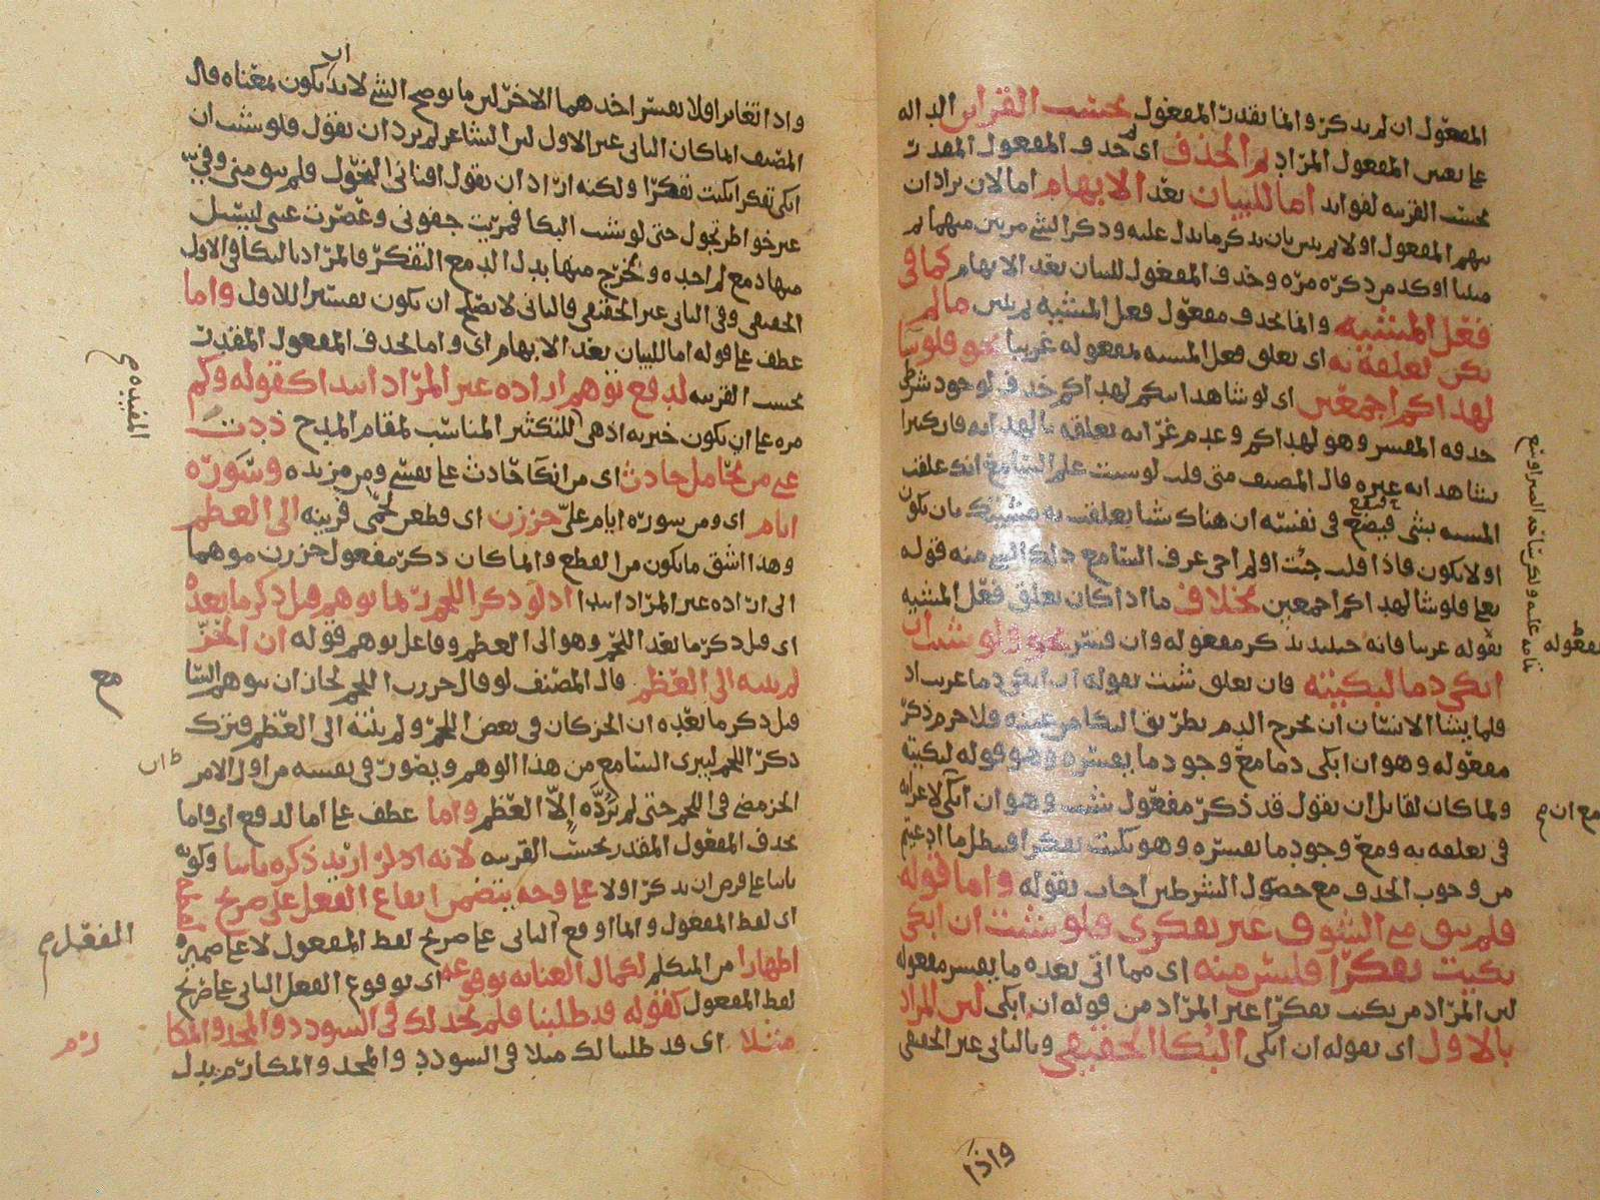 المفعول ان لم يذكر وانما يقدر المفعول بحسب القراين الداله
على تعيين المفعول المراد ثم الحذف اى حذف المفعول المقدر
بحسب القرينه لفوايد اما للبيان بعد الابهام اما لان يراد ان
يبهم المفعول اولا ثم يبين بان يذكر ما يدل عليه وذكر الشي مرتين مبهما ثم
مبينا اوكد من ذكره مره وحذف المفعول للبيان بعد الابهام كما فى
فعل المشيه وانما يحذف مفعول فعل المشيه ما لم
يكن تعلقه به اى تعلق فعل المشيه بمفعوله غريبا نحو فلو شا
لهداكم اجمعين اى لو شا هدايتكم لهداكم حذف لوجود شرط
حذفه المفسر وهو لهداكم وعدم غرابه تعلقه بالهدايه فان كثيرا
يشا هدايه غيره قال المصنف متى قلت لو شيت علم السامع انك علقت
المشيه بشي فيضع فى نفسه ان هناك شيا تعلقت به مشيتك بان يكون
او لا يكون فاذا قلت جيت او لم اجي عرف السامع ذلك الشي منه قوله
تعالى فلو شا لهداكم اجمعين بخلاف ما اذا كان تعلق فعل المشيه
بمفعوله غريبا فانه حينيذ يذكر مفعوله وان فسر نحو ولو شيت ان
ابكى دما لبكيته فان تعلق شيت بقوله ان ابكى دما غريب اذ
قلما يشا الانسان ان يخرج الدم بطريق البكا من عينه فلا جرم ذكر
مفعوله وهو ان ابكى دما مع وجود ما يفسره وهو قوله لبكيته
ولما كان لقايل ان يقول قد ذكر مفعول شيت وهو ان ابكى لا غرابه
فى تعلقه به ومع وجود ما يفسره وهو بكيت تفكرا فبطل ما ادعيتم
من وجوب الحذف مع حصول الشرطين اجاب بقوله واما قوله
فلم يبق مني الشوق غير تفكرى فلو شيت ان ابكى
بكيت تفكرا فليس منه اى مما اتى بعده ما يفسر مفعوله
ليس المراد من بكيت تفكرا غير المراد من قوله ان ابكى ليس المراد
بالاول اى بقوله ان ابكى البكا الحقيقى وبالثانى غير الحقيقى
واذا
واذا تغايرا فلا يفسر احدهما الاخر لان ما يوضح الشي لا بد ان يكون بمعناه قال
المصنف انما كان الثانى غير الاول لان الشاعر لم يرد ان يقول فلو شيت ان
ابكى تفكر ابكيت تفكرا ولكنه اراد ان يقول افنانى النحول فلم يبق منى وفى
غير خواطر تجول حتى لو شيت البكا فمريت جفونى وعصرت عينى ليسيل
منها دمع لم اجده وتخرج منها بدل الدمع التفكر فالمراد بالبكا فى الاول
الحقيقى وفى الثانى غير الحقيقى فالثانى لا يصلح ان يكون تفسيرا للاول واما
عطف على قوله اما للبيان بعد الابهام اى واما لحذف المفعول المقدر
بحسب القرينه لدفع توهم اراده غير المراد ابتدا كقوله وكم
مره على ان يكون خبريه اذ هى للتكثير المناسب لمقام المدح ذدت
عنى من تحامل حادث اى من انكا حادث على نفسى ومن مزيده وسوره
ايام اى ومن سوره ايام على حززن اى قطعن لحمى قرينه الى العظم
وهذا اشق ما يكون من القطع ولما كان ذكر مفعول حززن موهما
الى اراده غير المراد ابتدا اذ لو ذكر اللحم ربما توهم قبل ذكر ما بعده
اى قبل ذكر ما بعد اللحم وهو الى العظم وفاعل توهم قوله ان الحز
لم ينته الى العظم قال المصنف لو قال حززن اللحم لجاز ان يتوهم السامع
قبل ذكر ما بعده ان الحز كان فى بعض اللحم ولم ينته الى العظم فترك
ذكر اللحم ليبرى السامع من هذا الوهم ويصور فى نفسه من اول الامر
الحز مضى فى اللحم حتى لم يرده الا العظم واما عطف على اما لدفع اى واما
يحذف المفعول المقدر بحسب القرينه لانه اذا اريد ذكره ثانيا وكونه
ثانيا على فرض ان يذكر اولا على وجه يتضمن ايقاع الفعل على صريح
اى لفظ المفعول وانما اوقع الثانى على صريح لفظ المفعول لا على ضميره
اظهارا من المتكلم لكمال العنايه بوقوعه اى بوقوع الفعل الثانى على صريح
لفظ المفعول كقوله قد طلبنا فلم نجد لك فى السودد والمجد والمكا
مثلا اى قد طلبنا لك مثلا فى السودد والمجد والمكارم بدل
المفيده
مع
ان
الفعل
رم
بمفعوله
مع ان